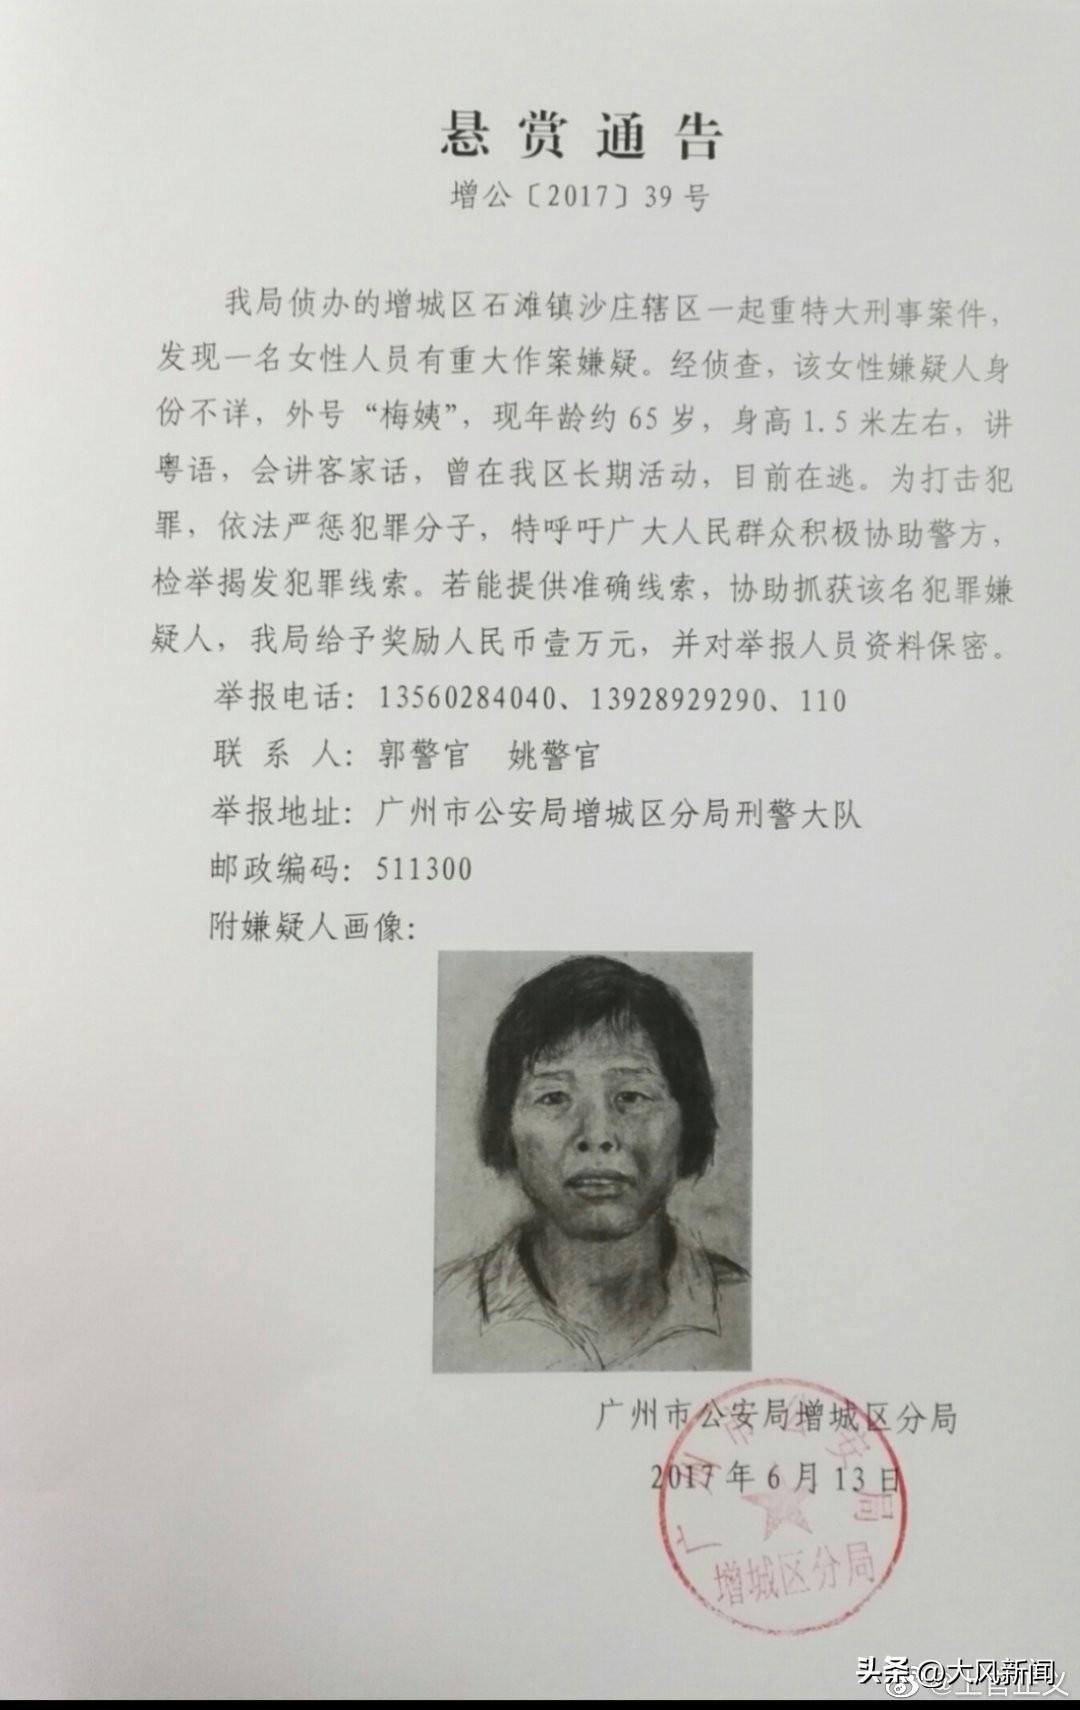 悬赏通告
增公〔2017〕39号
我局侦办的增城区石滩镇沙庄辖区一起重特大刑事案件，
发现一名女性人员有重大作案嫌疑。经侦查，该女性嫌疑人身
份不详，外号“梅姨”，现年龄约65岁，身高1.5米左右，讲
粤语，会讲客家话，曾在我区长期活动，目前在逃。为打击犯
罪，依法严惩犯罪分子，特呼吁广大人民群众积极协助警方，
检举揭发犯罪线索。若能提供准确线索，协助抓获该名犯罪嫌
疑人，我局给予奖励人民币壹万元，并对举报人员资料保密。
举报电话：13560284040、13928929290、110
联系人：郭警官 姚警官
举报地址：广州市公安局增城区分局刑警大队
邮政编码：511300
附嫌疑人画像：
广州市公安局增城区分局
2017年6月13日
广州市公安局
增城区分局
头条 @大风新闻
@上官正义